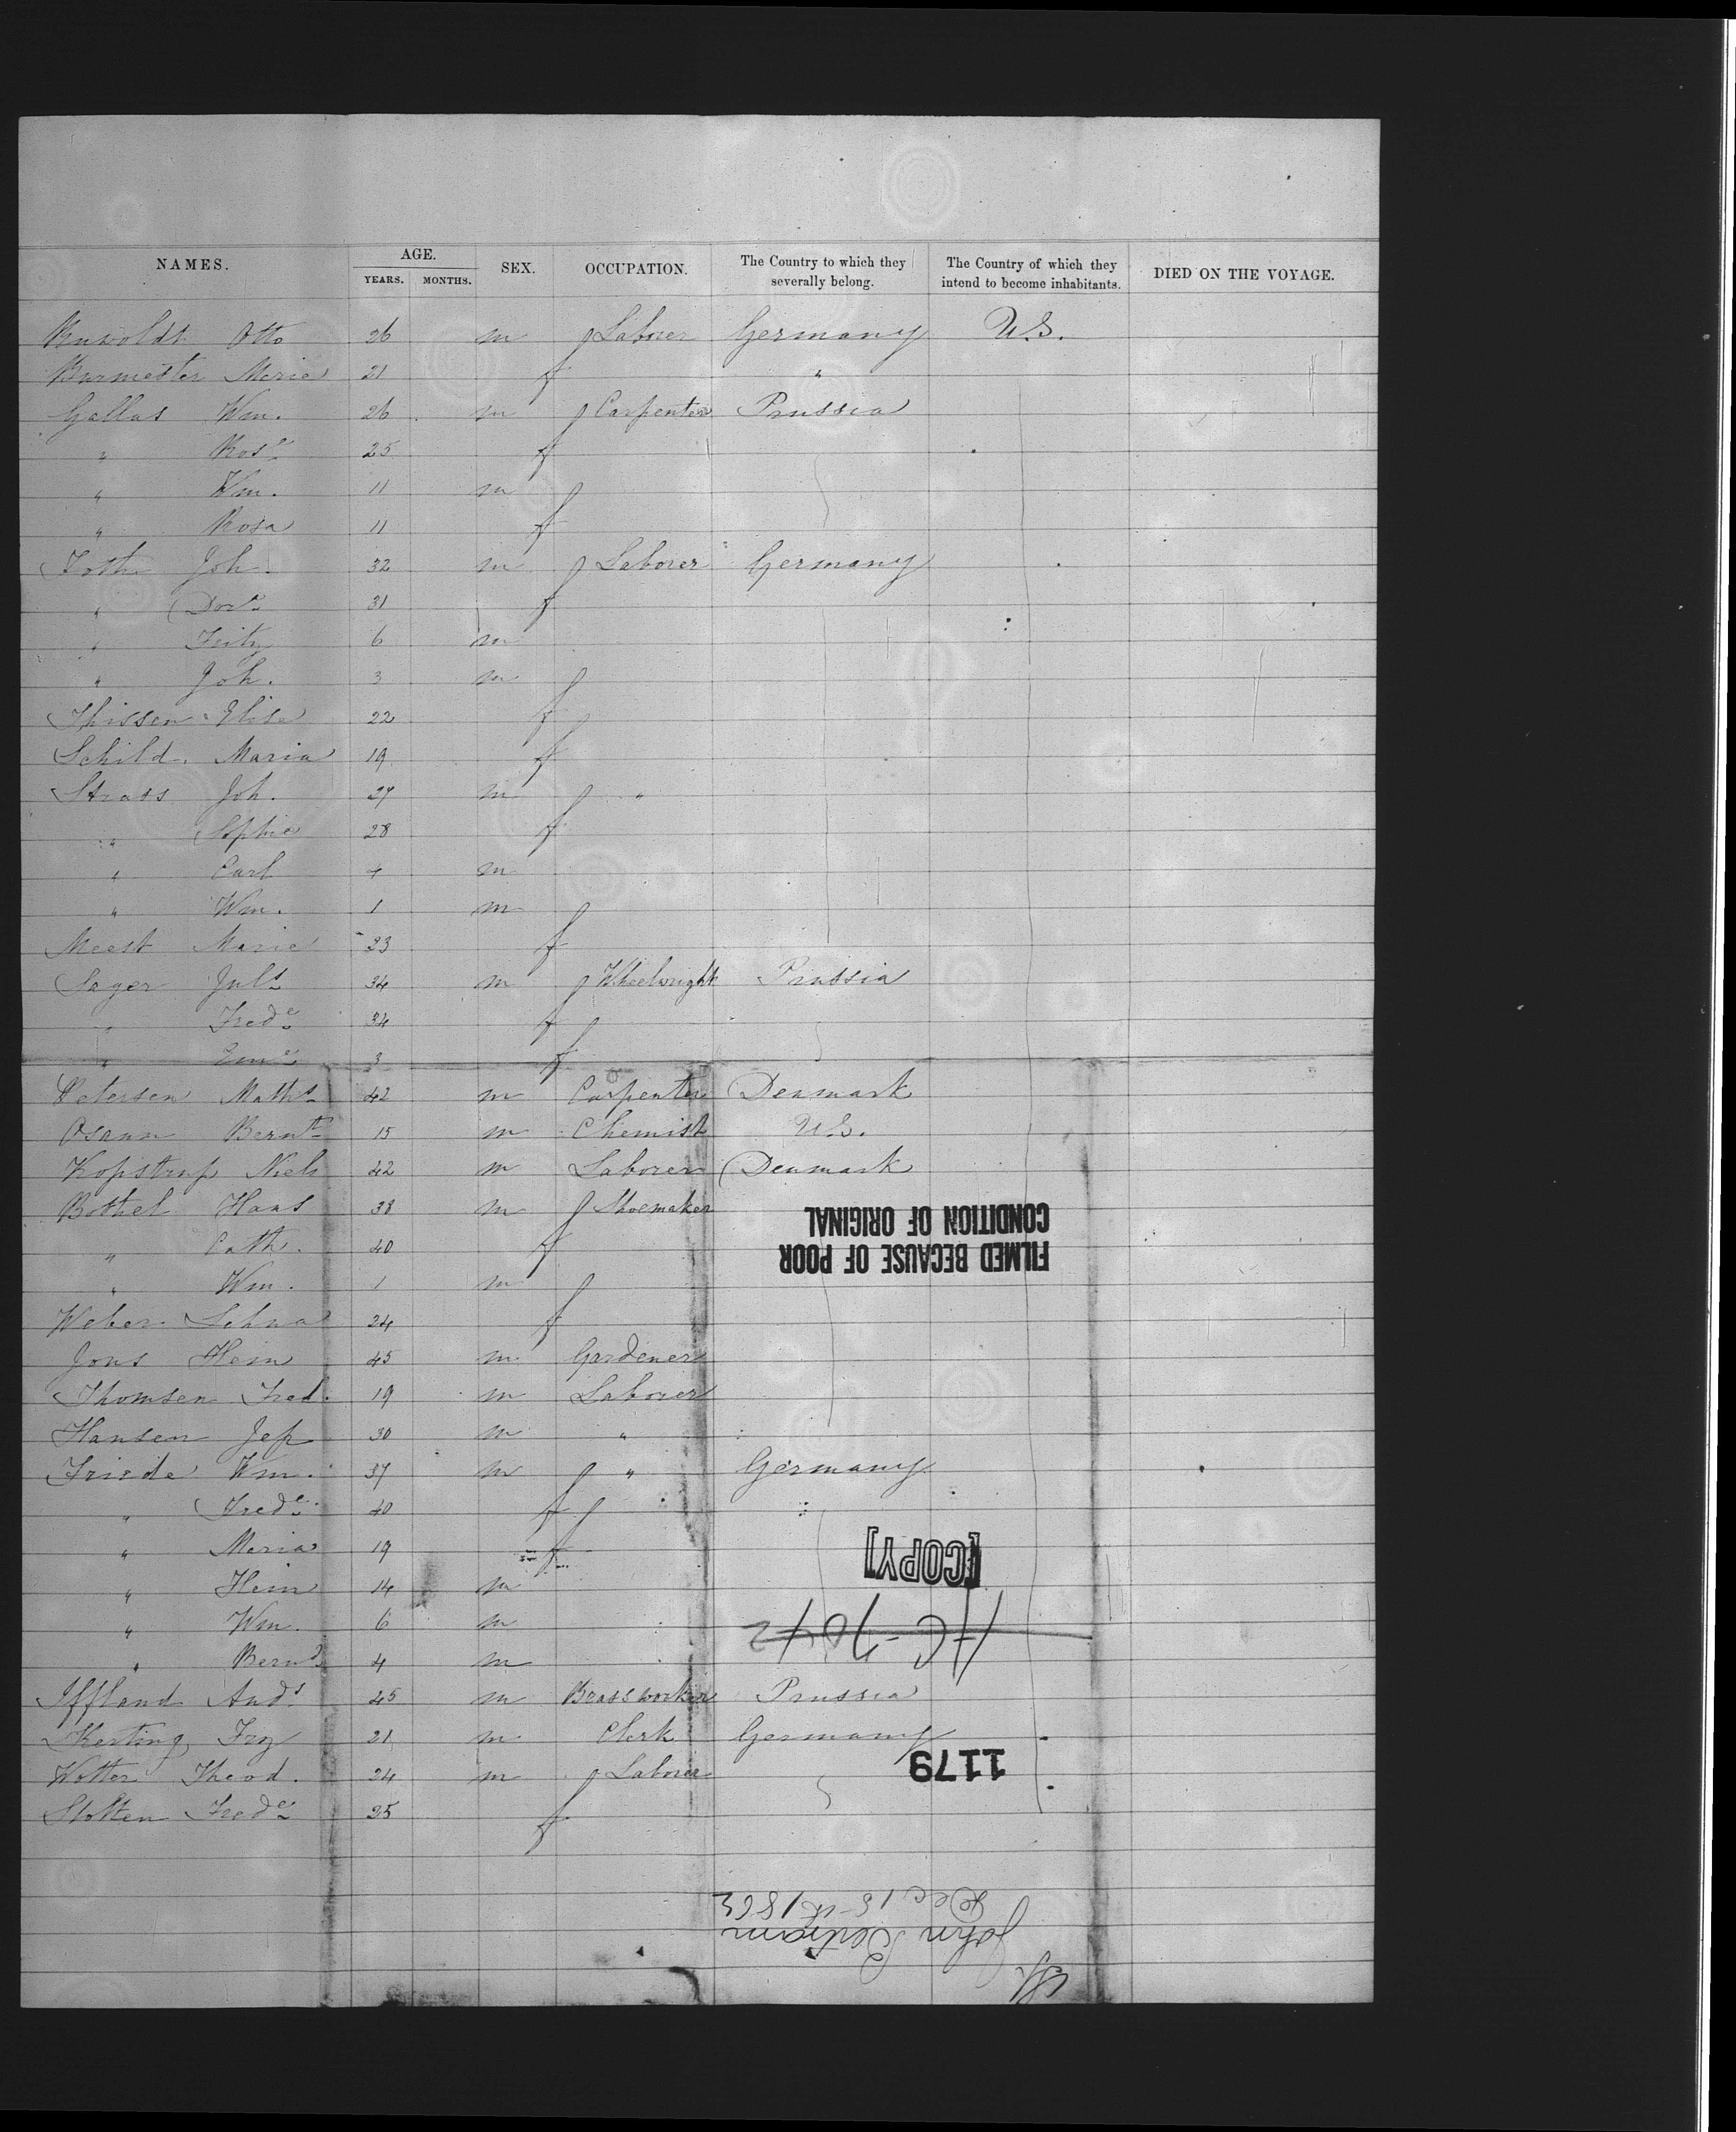 NAMES. AGE. SEX. OCCUPATION. The Country to which they severally belong. The Country of which they intend to become inhabitants. DIED ON THE VOYAGE.
YEARS. MONTHS.
Otto 26 m Laborer Germany U.S.
Burmester Marie 21 f "
Gallas Wm. 26 m Carpenter Prussia
" Rose 25 f
" Wm. 11 m
" Rosa 11 f
Joh. 32 m Laborer Germany
" Dore 31 f
" Fritz 6 m
" Joh. 3 m
Thissen Elise 22 f
Schild. Maria 19 f
Strass Joh. 27 m "
" Sophie 28 f
" Carl 4 m
" Wm. 1 m
Meest Marie 23 f
Sager Juls 34 m Wheelwright Prussia
" Frede 34 f
" Eme 3 f
Petersen Maths 42 m Carpenter Denmark
Osann Bernt 15 m Chemist U.S.
Kopstrup Niels 42 m Laborer Denmark
Bothel Hans 38 m Shoemaker
" Cath. 40 f
" Wm. 1 m
FILMED BECAUSE OF POOR
CONDITION OF ORIGINAL
Weber 24 f
Jons Hein 45 m Gardener
Thomsen Fred. 19 m Laborer
Hansen Jep 30 m "
Friede Wm. 37 m " Germany
" Frede. 40 f
" Maria 19 f
" Hein 14 m
" Wm. 6 m
" Bernd 4 m
[COPY]
Iffland Ands 45 m Brassworker Prussia
Kerting Frz 21 m Clerk Germany
Wotter Theod. 24 m Laborer
Stolten Frede 25 f
1179
John Bertram
Dec 15